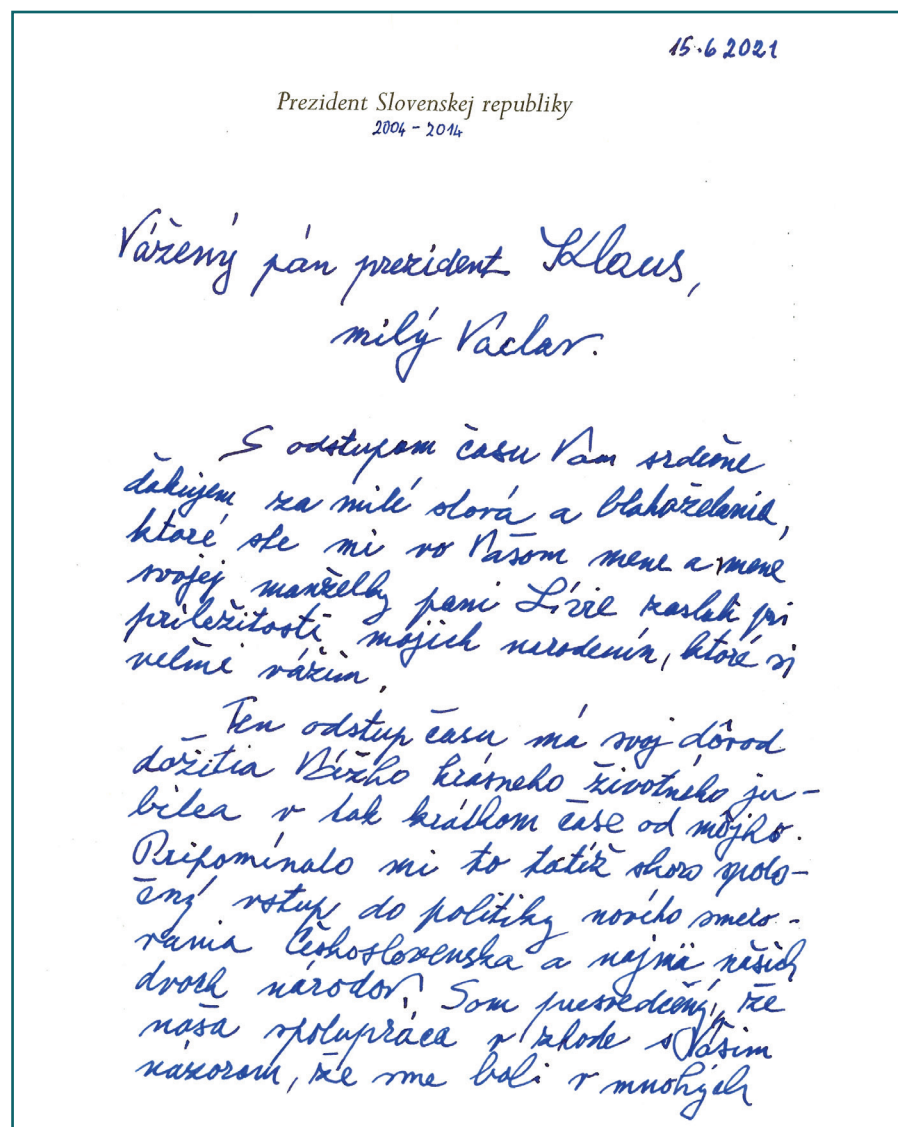 15.6 2021
Prezident Slovenskej republiky
2004 - 2014
Vážený pán prezident Klaus,
milý Václav.
S odstupom času Vám srdečne
ďakujem za milé slová a blahoželania,
ktoré ste mi vo Vašom mene a mene
svojej manželky pani Lívie zaslali pri
príležitosti mojich narodenín, ktoré si
veľmi vážim.
Ten odstup času má svoj dôvod
dožitia Vášho krásneho životného ju-
bilea v tak krátkom čase od môjho.
Pripomínalo mi to totiž skoro spolo-
čný vstup do politiky nového smero-
vania Československa a najmä našich
dvoch národov. Som presvedčený, že
naša spolupráca v zhode s Vášim
názorom, že sme boli v mnohých